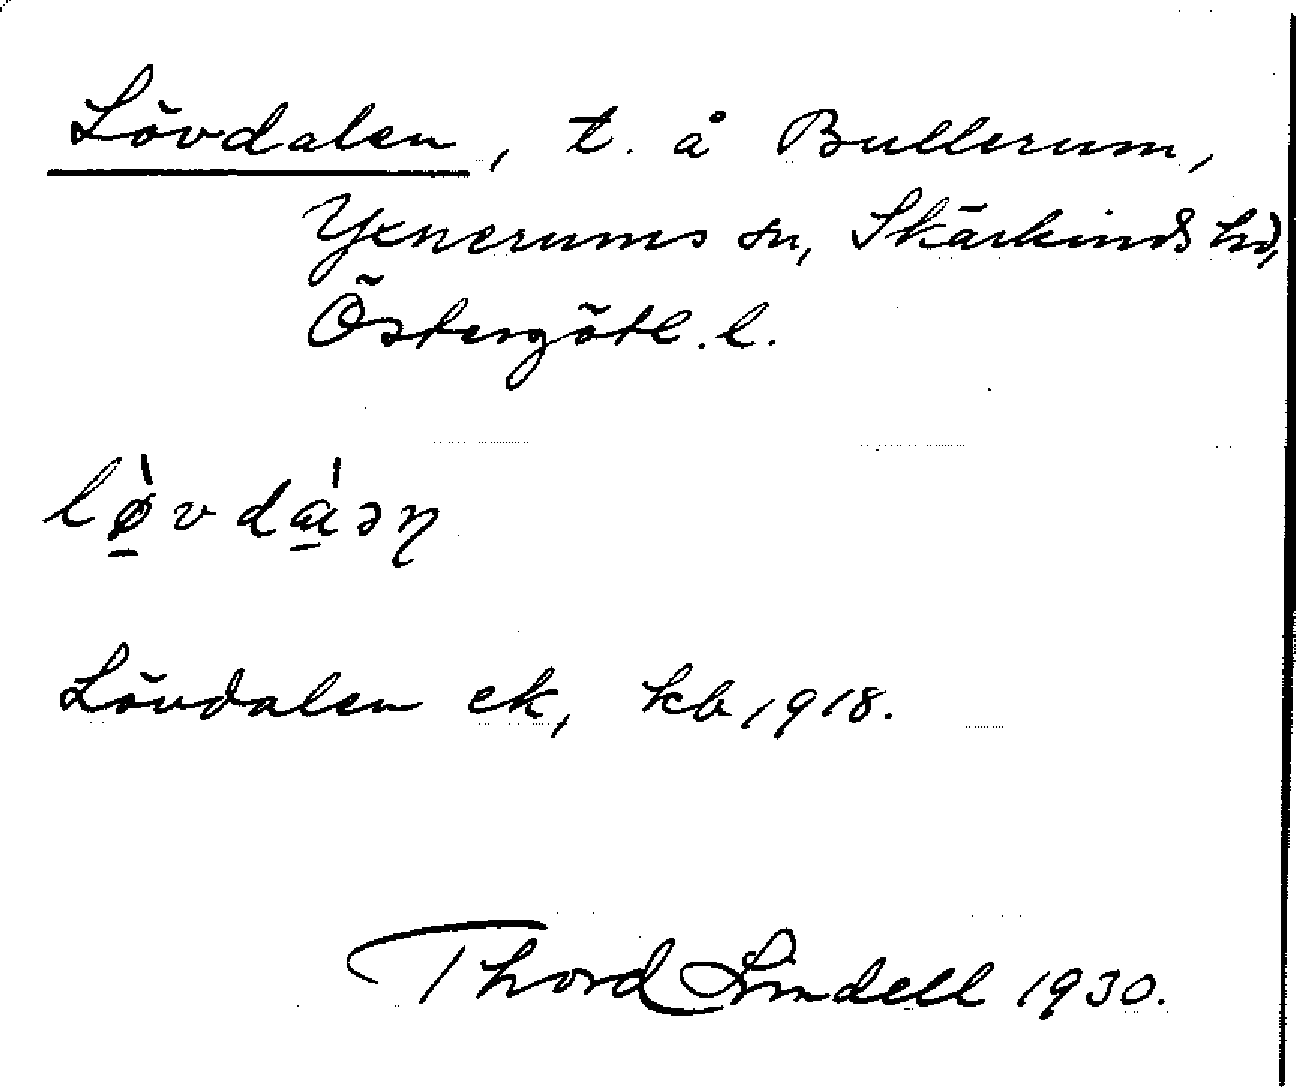 Lövdalen, t. å Bullerum,
Yxnerums sn, Skärkinds hd,
Östergötl. l.
lø̱̀vdá̱əη
Lövdalen ek, kb 1918.
Thord Lindell 1930.